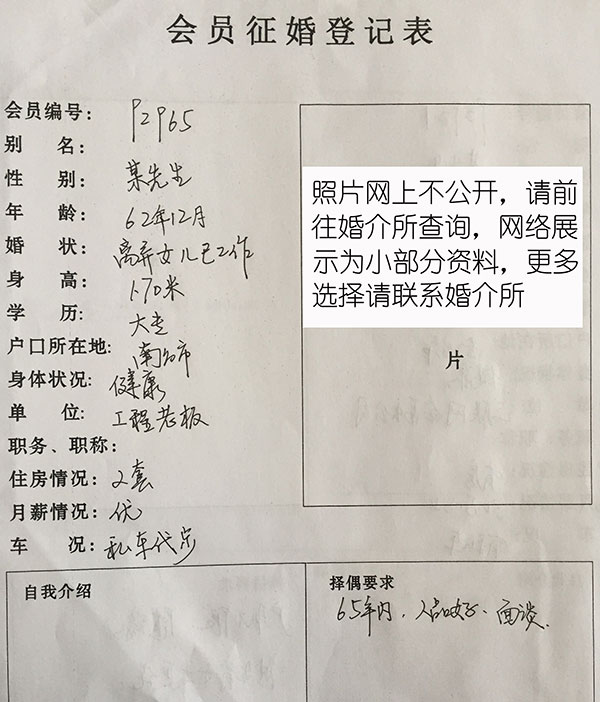 会员征婚登记表
会员编号: P2965
别 名:
性 别: 某先生
年 龄: 62年12月
婚 状: 离异女儿已工作
身 高: 1.70米
学 历: 大专
户口所在地: 南昌市
身体状况: 健康
单 位: 工程老板
职务、职称:
住房情况: 2套
月薪情况: 优
车 况: 私车代步
照片网上不公开，请前
往婚介所查询，网络展
示为小部分资料，更多
选择请联系婚介所
片
自我介绍
择偶要求
65年内、人品好、面谈.